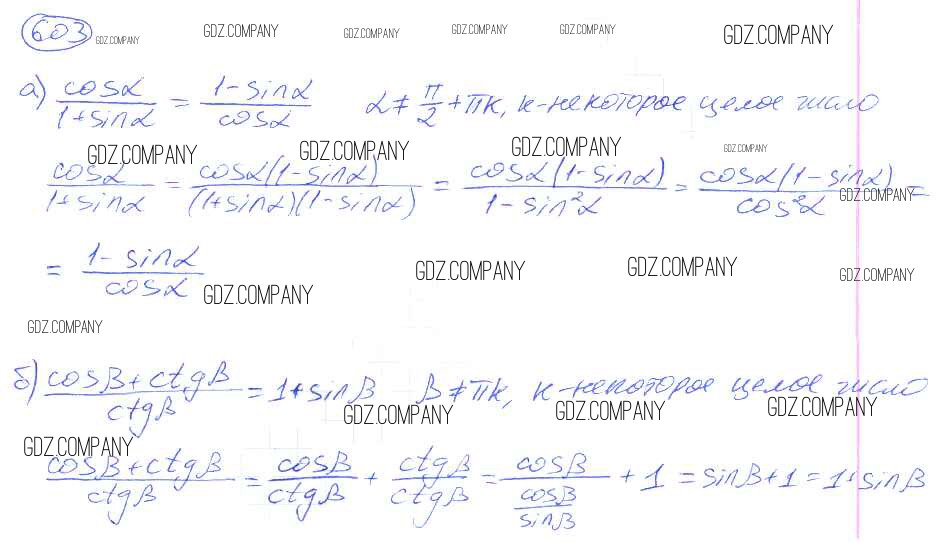 603
GDZ.COMPANY GDZ.COMPANY GDZ.COMPANY GDZ.COMPANY GDZ.COMPANY GDZ.COMPANY
а) cosα/(1+sinα) = (1-sinα)/cosα α ≠ π/2 + πк, к-некоторое целое число
GDZ.COMPANY GDZ.COMPANY GDZ.COMPANY GDZ.COMPANY
cosα/(1+sinα) = cosα(1-sinα)/((1+sinα)(1-sinα)) = cosα(1-sinα)/(1-sin²α) = cosα(1-sinα)/cos²α =
GDZ.COMPANY
= (1-sinα)/cosα
GDZ.COMPANY GDZ.COMPANY GDZ.COMPANY GDZ.COMPANY
GDZ.COMPANY
б) (cosβ+ctgβ)/ctgβ = 1+sinβ β ≠ πк, к-некоторое целое число
GDZ.COMPANY GDZ.COMPANY GDZ.COMPANY
GDZ.COMPANY
(cosβ+ctgβ)/ctgβ = cosβ/ctgβ + ctgβ/ctgβ = cosβ/(cosβ/sinβ) + 1 = sinβ+1 = 1+sinβ